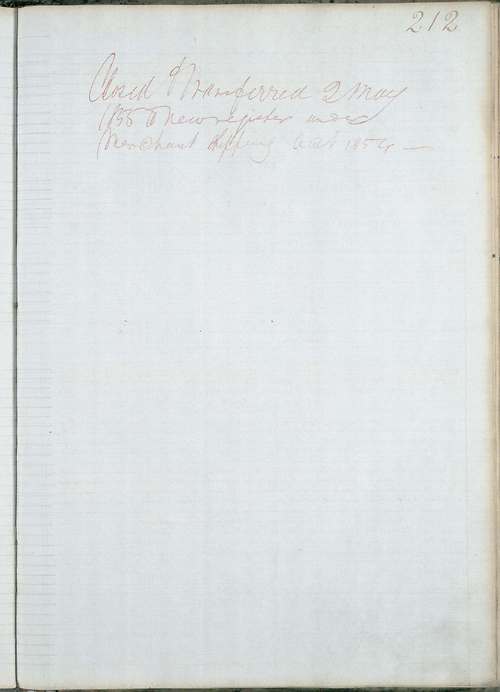 212
Closed & Transferred 2 May
1855 to new register under
Merchant Shipping Act 1854 —